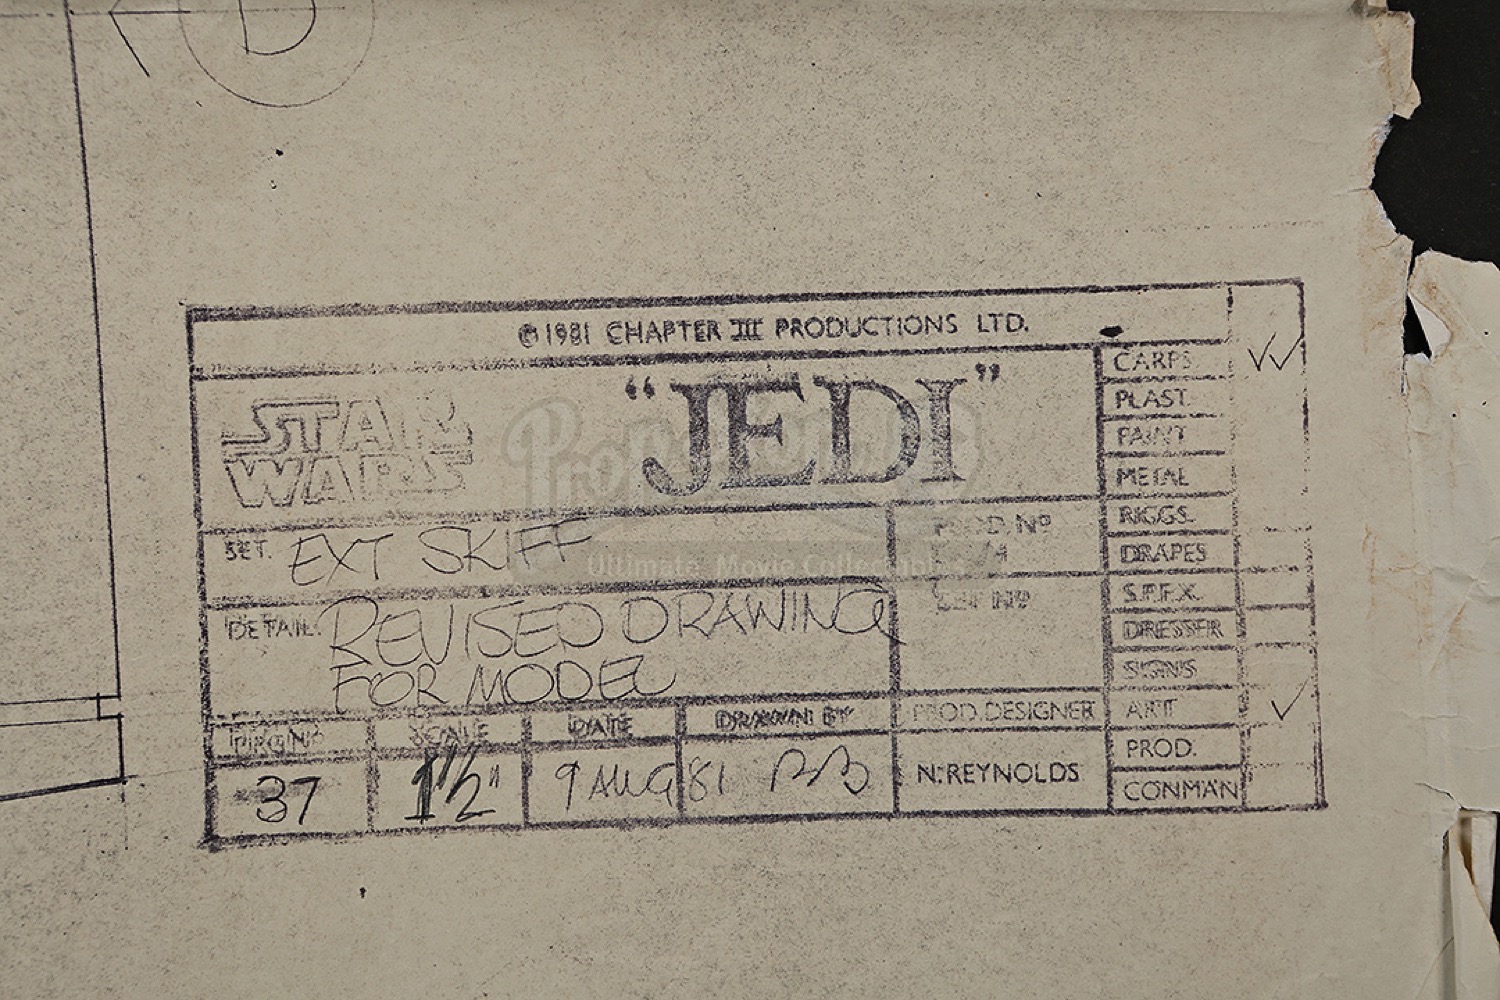 D
© 1981 CHAPTER III PRODUCTIONS LTD.
STAR
WARS
"JEDI"
SET. EXT SKIFF
PROD. Nº
DETAIL. REVISED DRAWING
FOR MODEL
SET Nº
DRG Nº
37
SCALE
1½"
DATE
9 AUG 81
DRAWN BY
PROD. DESIGNER
N. REYNOLDS
CARPS ✓✓
PLAST.
PAINT
METAL
RIGGS.
DRAPES
S.P.F.X.
DRESSER
SIGNS
ART ✓
PROD.
CONMAN
Propstore
Ultimate Movie Collectables